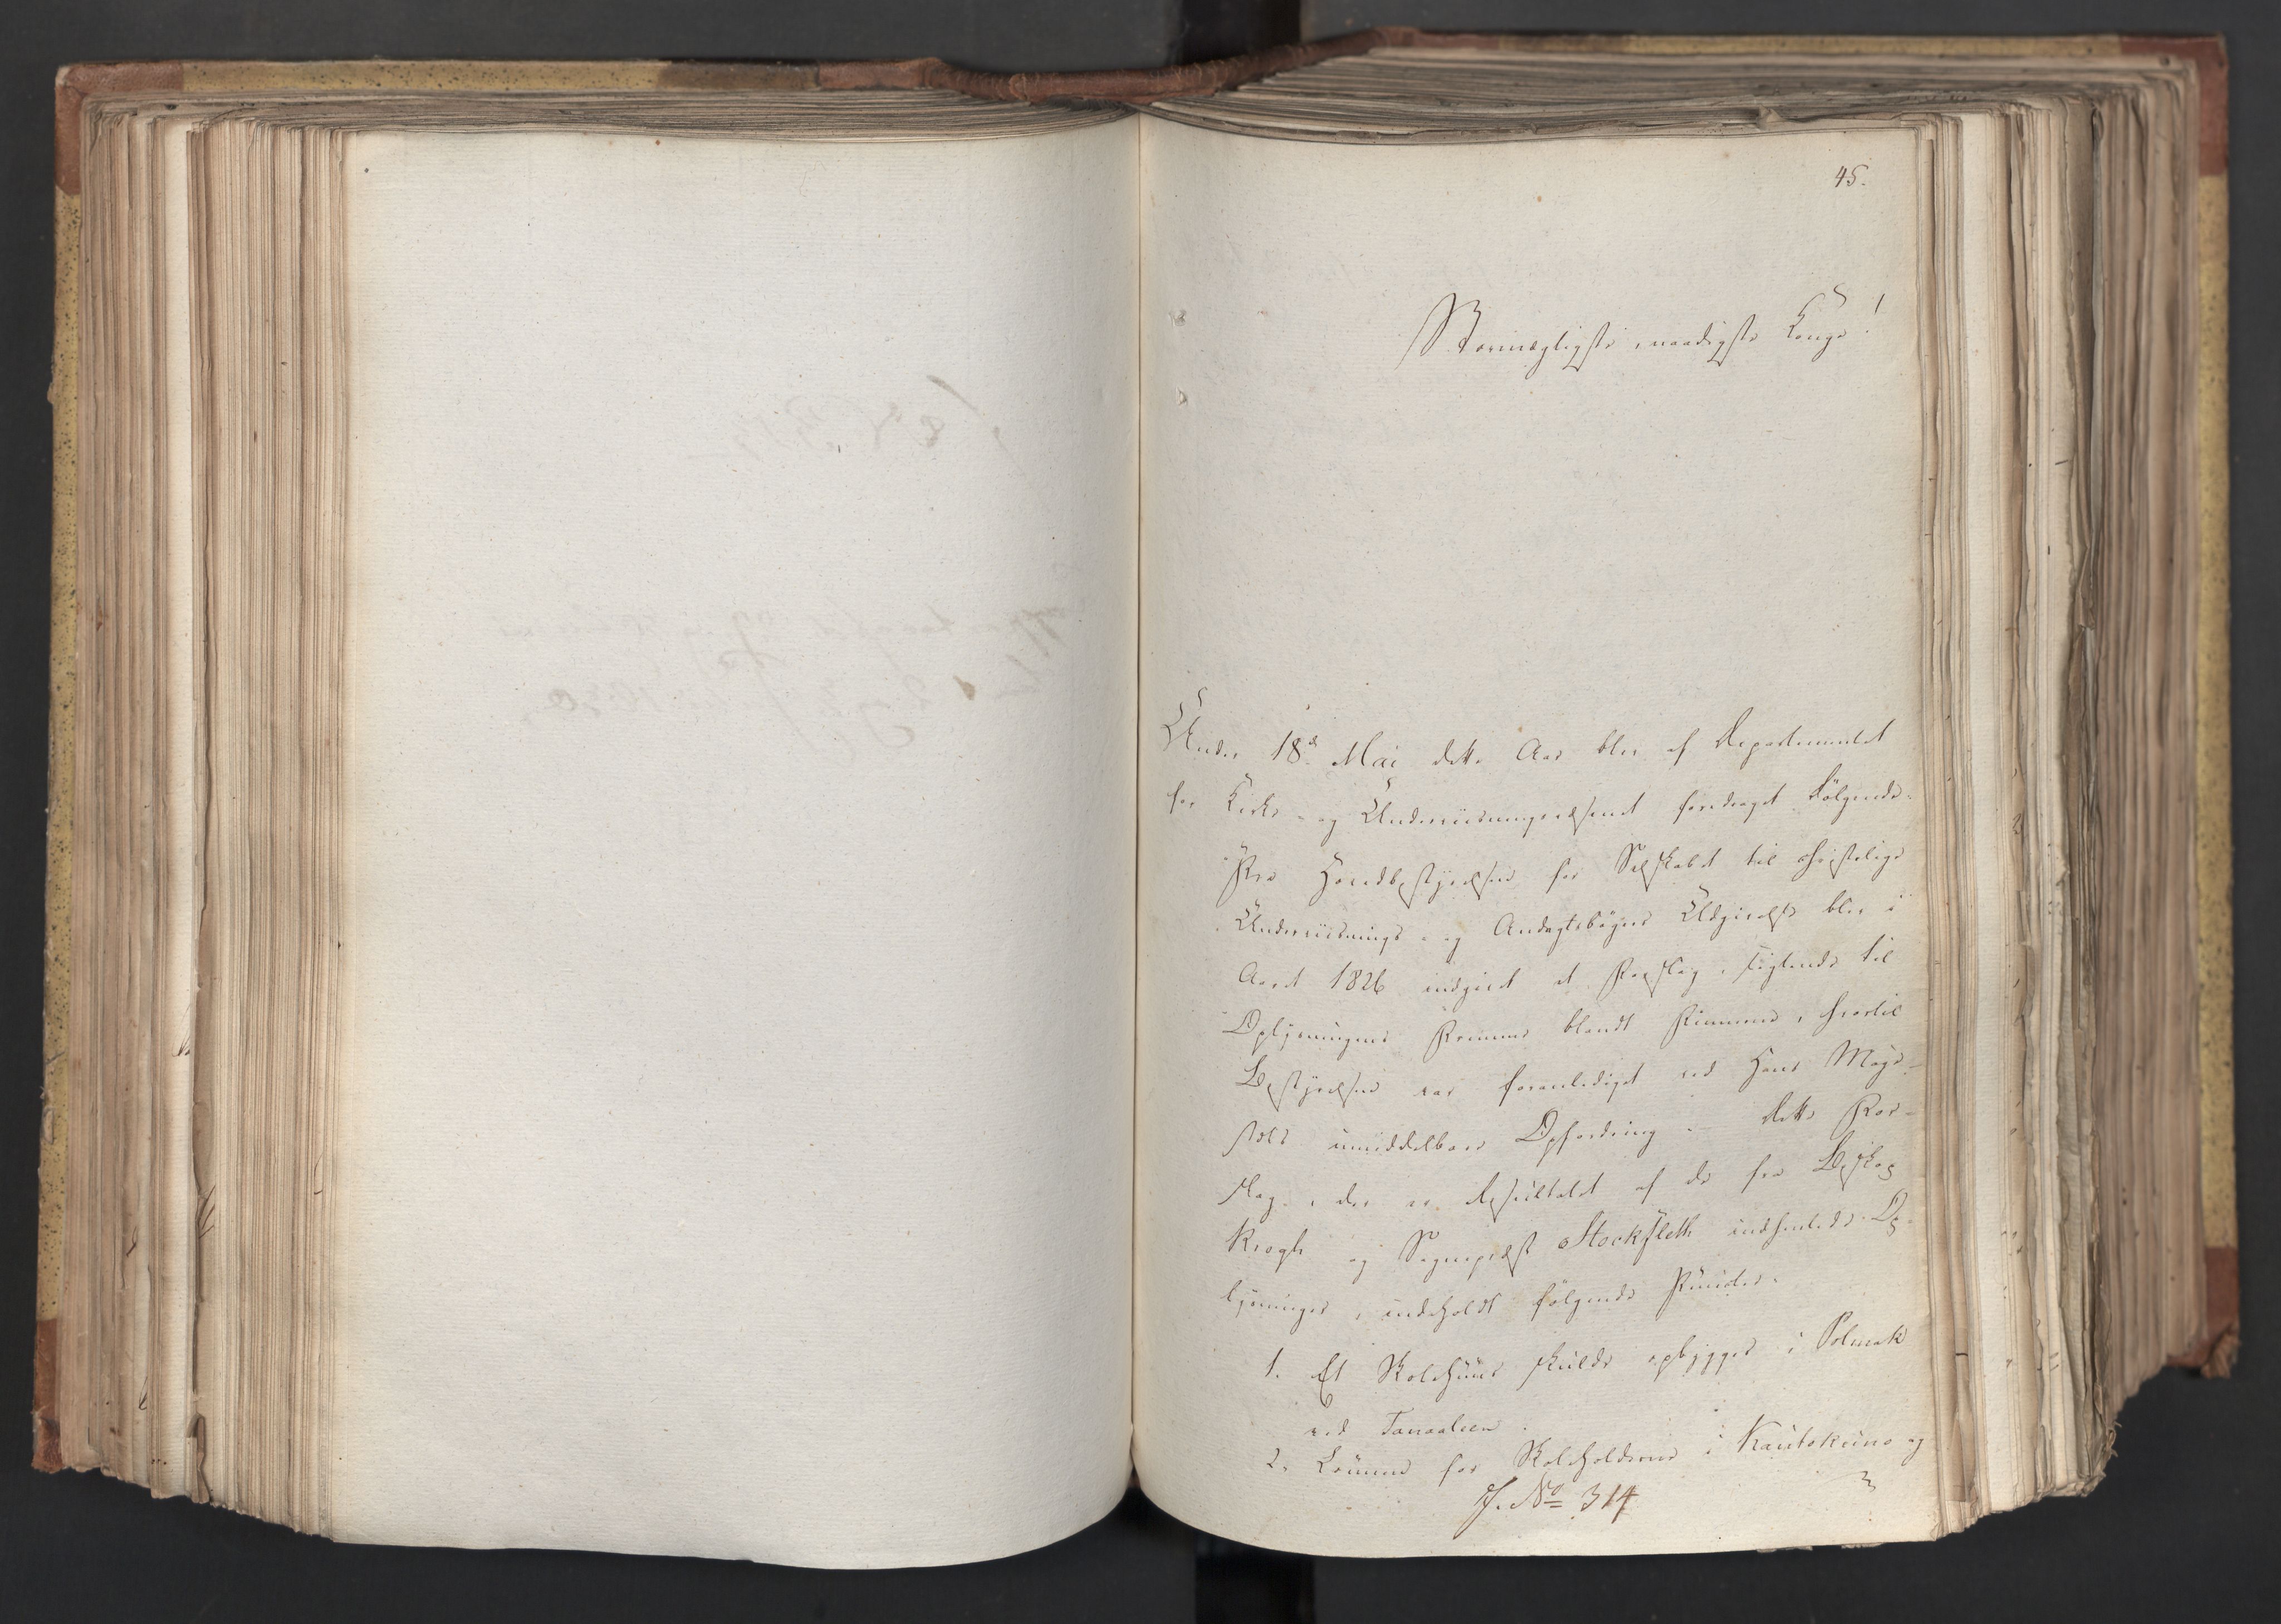 45.
Stormægtigste, naadigste Konge!
Under 18de Mai dette Aar blev af Departementet
for Kirke- og Underviisningsvæsenet foredraget Følgende:
Fra Hovedbestyrelsen for Selskabet til christelige
Underviisnings- og Andagtsbøgers Udgivelse blev i
Aaret 1826 indgivet et Forslag, sigtende til
Oplysningens Fremme blandt Finnerne, hvortil
Bestyrelsen var foranlediget ved Hans Maje-
stæts umiddelbare Opfordring. Dette For-
slag, der er Resultatet af de fra Biskop
Krogh og Sognepræst Stockfleth indhentede Op-
lysninger, indeholdt følgende Puncter:
1. Et Skolehuus skulde opbygges i Polmak
ved Tanaelven.
2. Lønnen for Skoleholderne i Kautokeino og
J. No 314